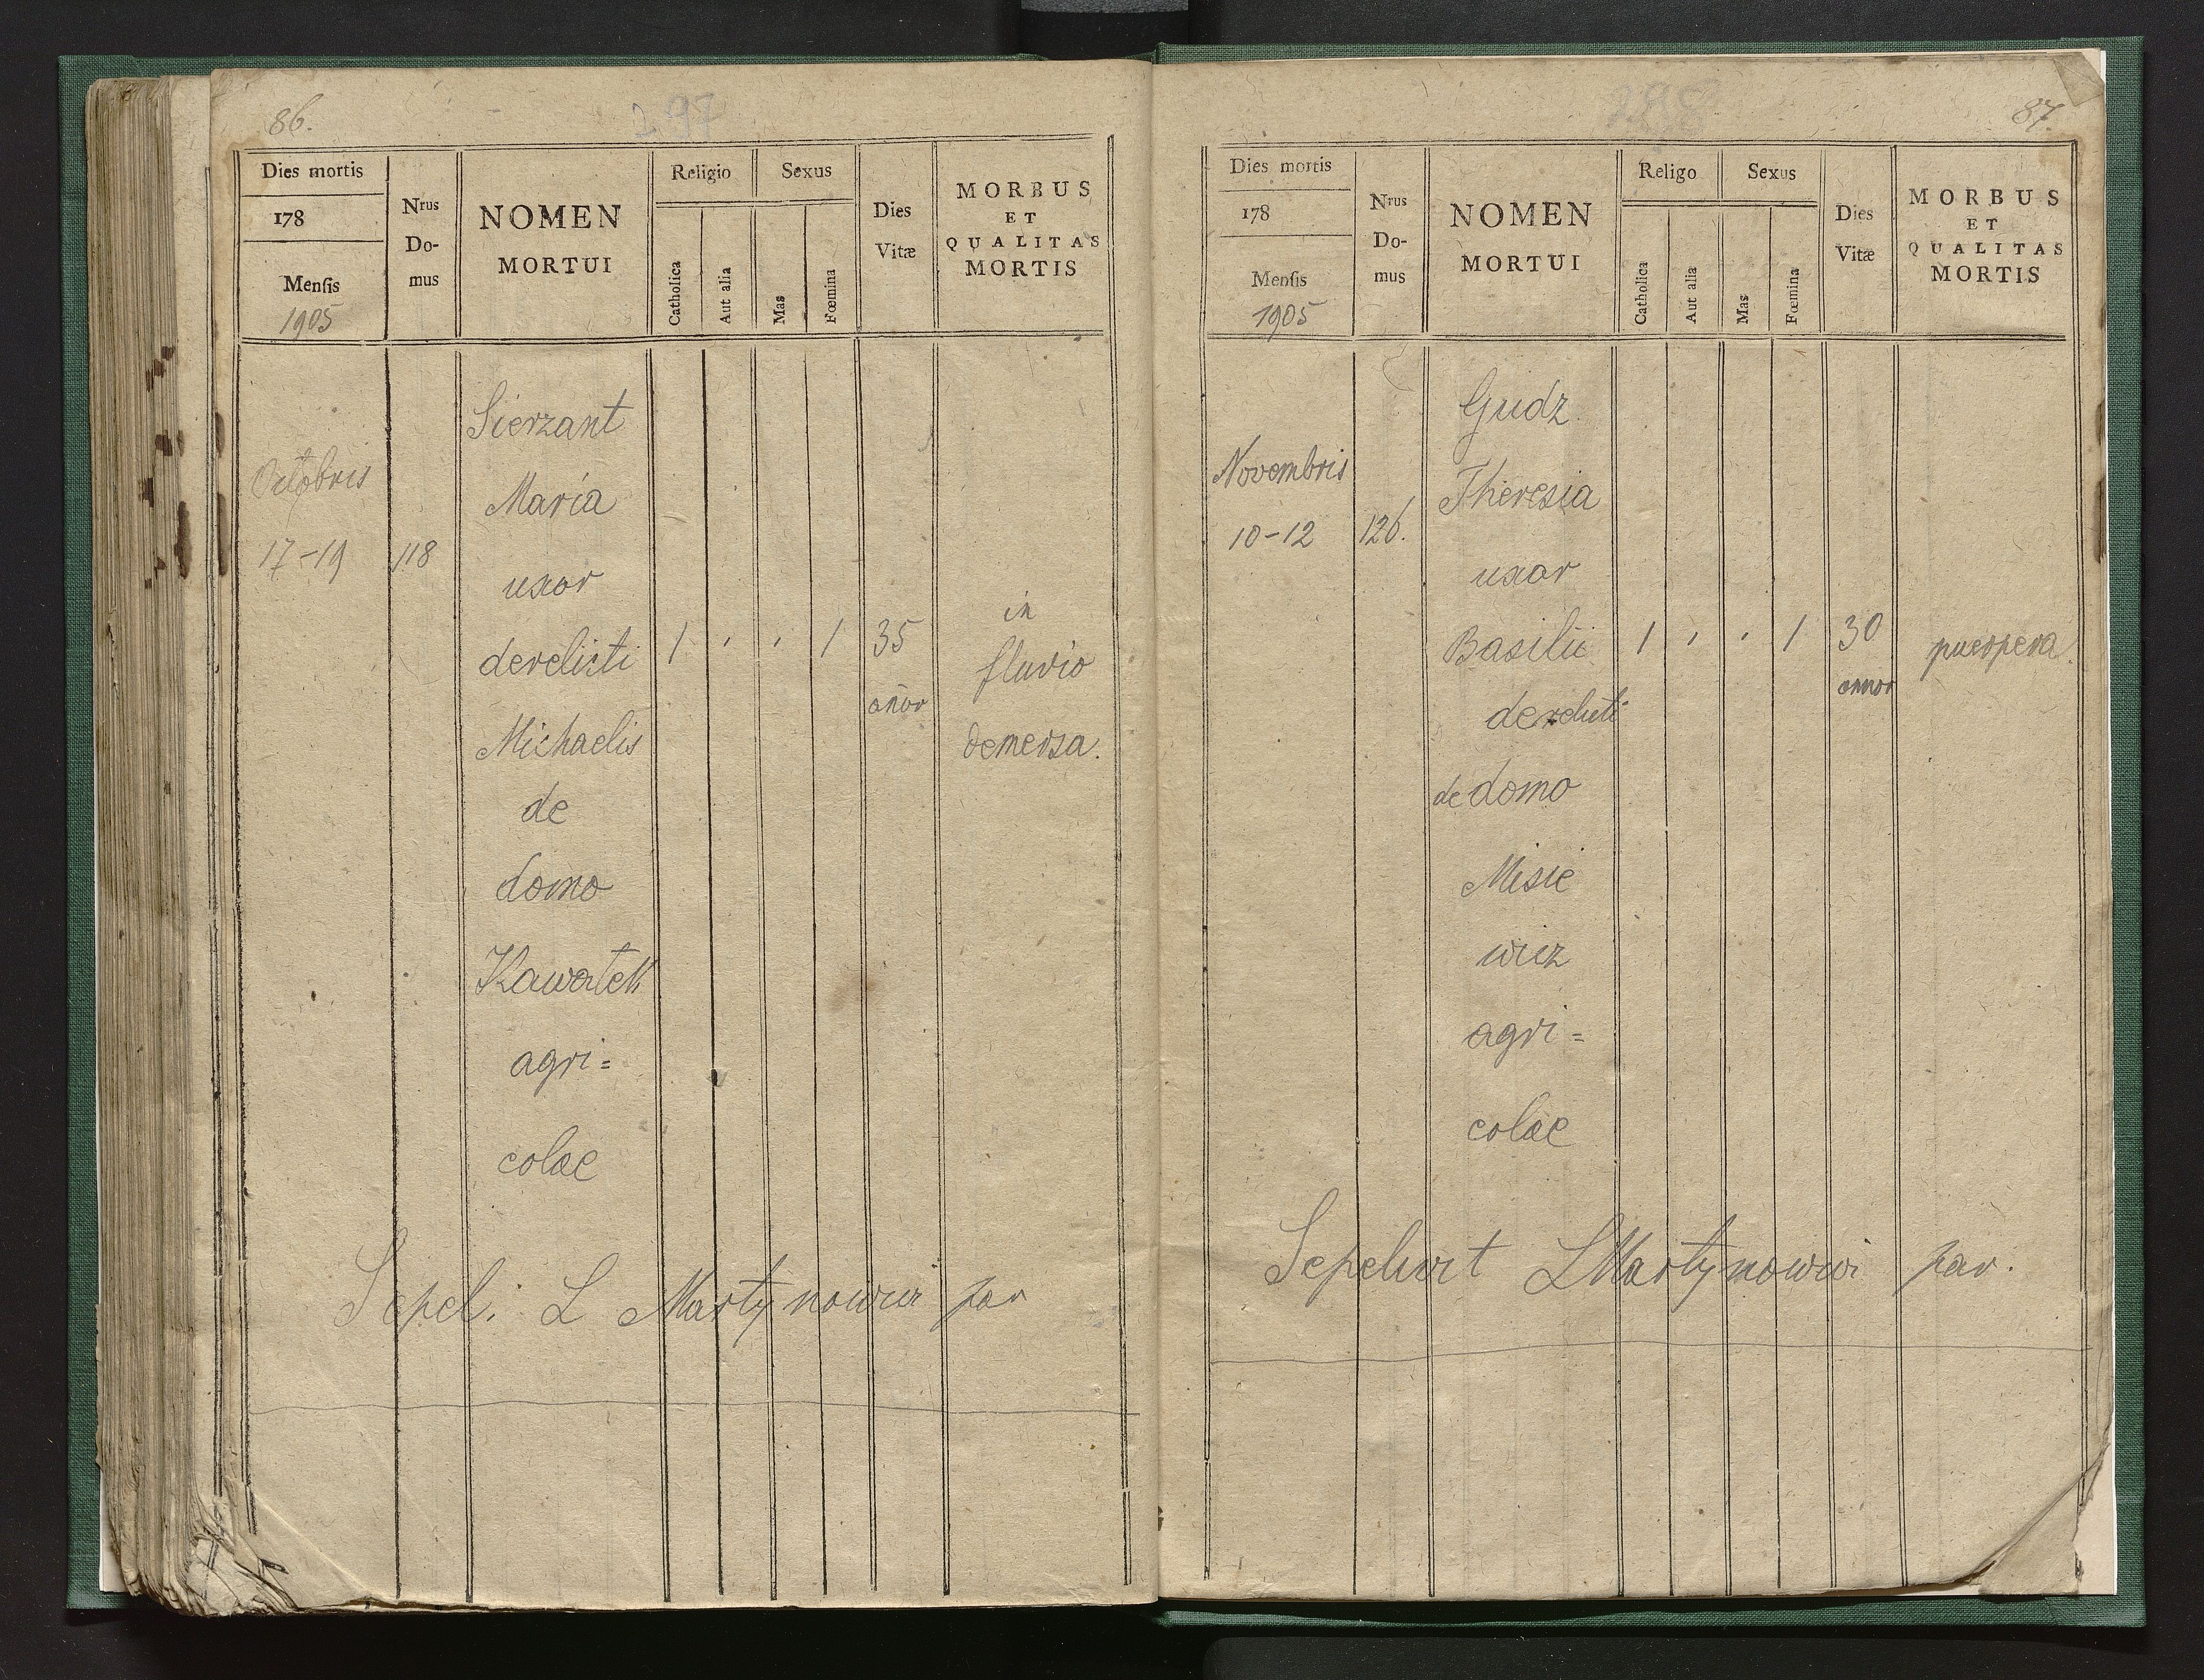 86.
297
Dies mortis
178
Menſis
1905
Nrus
Do-
mus
NOMEN
MORTUI
Religio
Catholica
Aut alia
Sexus
Mas
Fœmina
Dies
Vitæ
MORBUS
ET
QUALITAS
MORTIS
Octobris
17-19
118
Sierzant
Maria
uxor
derelicti
Michaelis
de
domo
Kawałek
agri=
colae
1 · · 1
35
añor
in
fluvio
demersa.
Sepel. L Martynowicz par
87
298
Dies mortis
178
Menſis
1905
Nrus
Do-
mus
NOMEN
MORTUI
Religo
Catholica
Aut alia
Sexus
Mas
Fœmina
Dies
Vitæ
MORBUS
ET
QUALITAS
MORTIS
Novembris
10-12
126.
Gudz
Theresia
uxor
Basilii
derelicti
de domo
Misie
wicz
agri=
colae
1 · · 1
30
annor
puerpera.
Sepelivit LMartynowicz par.